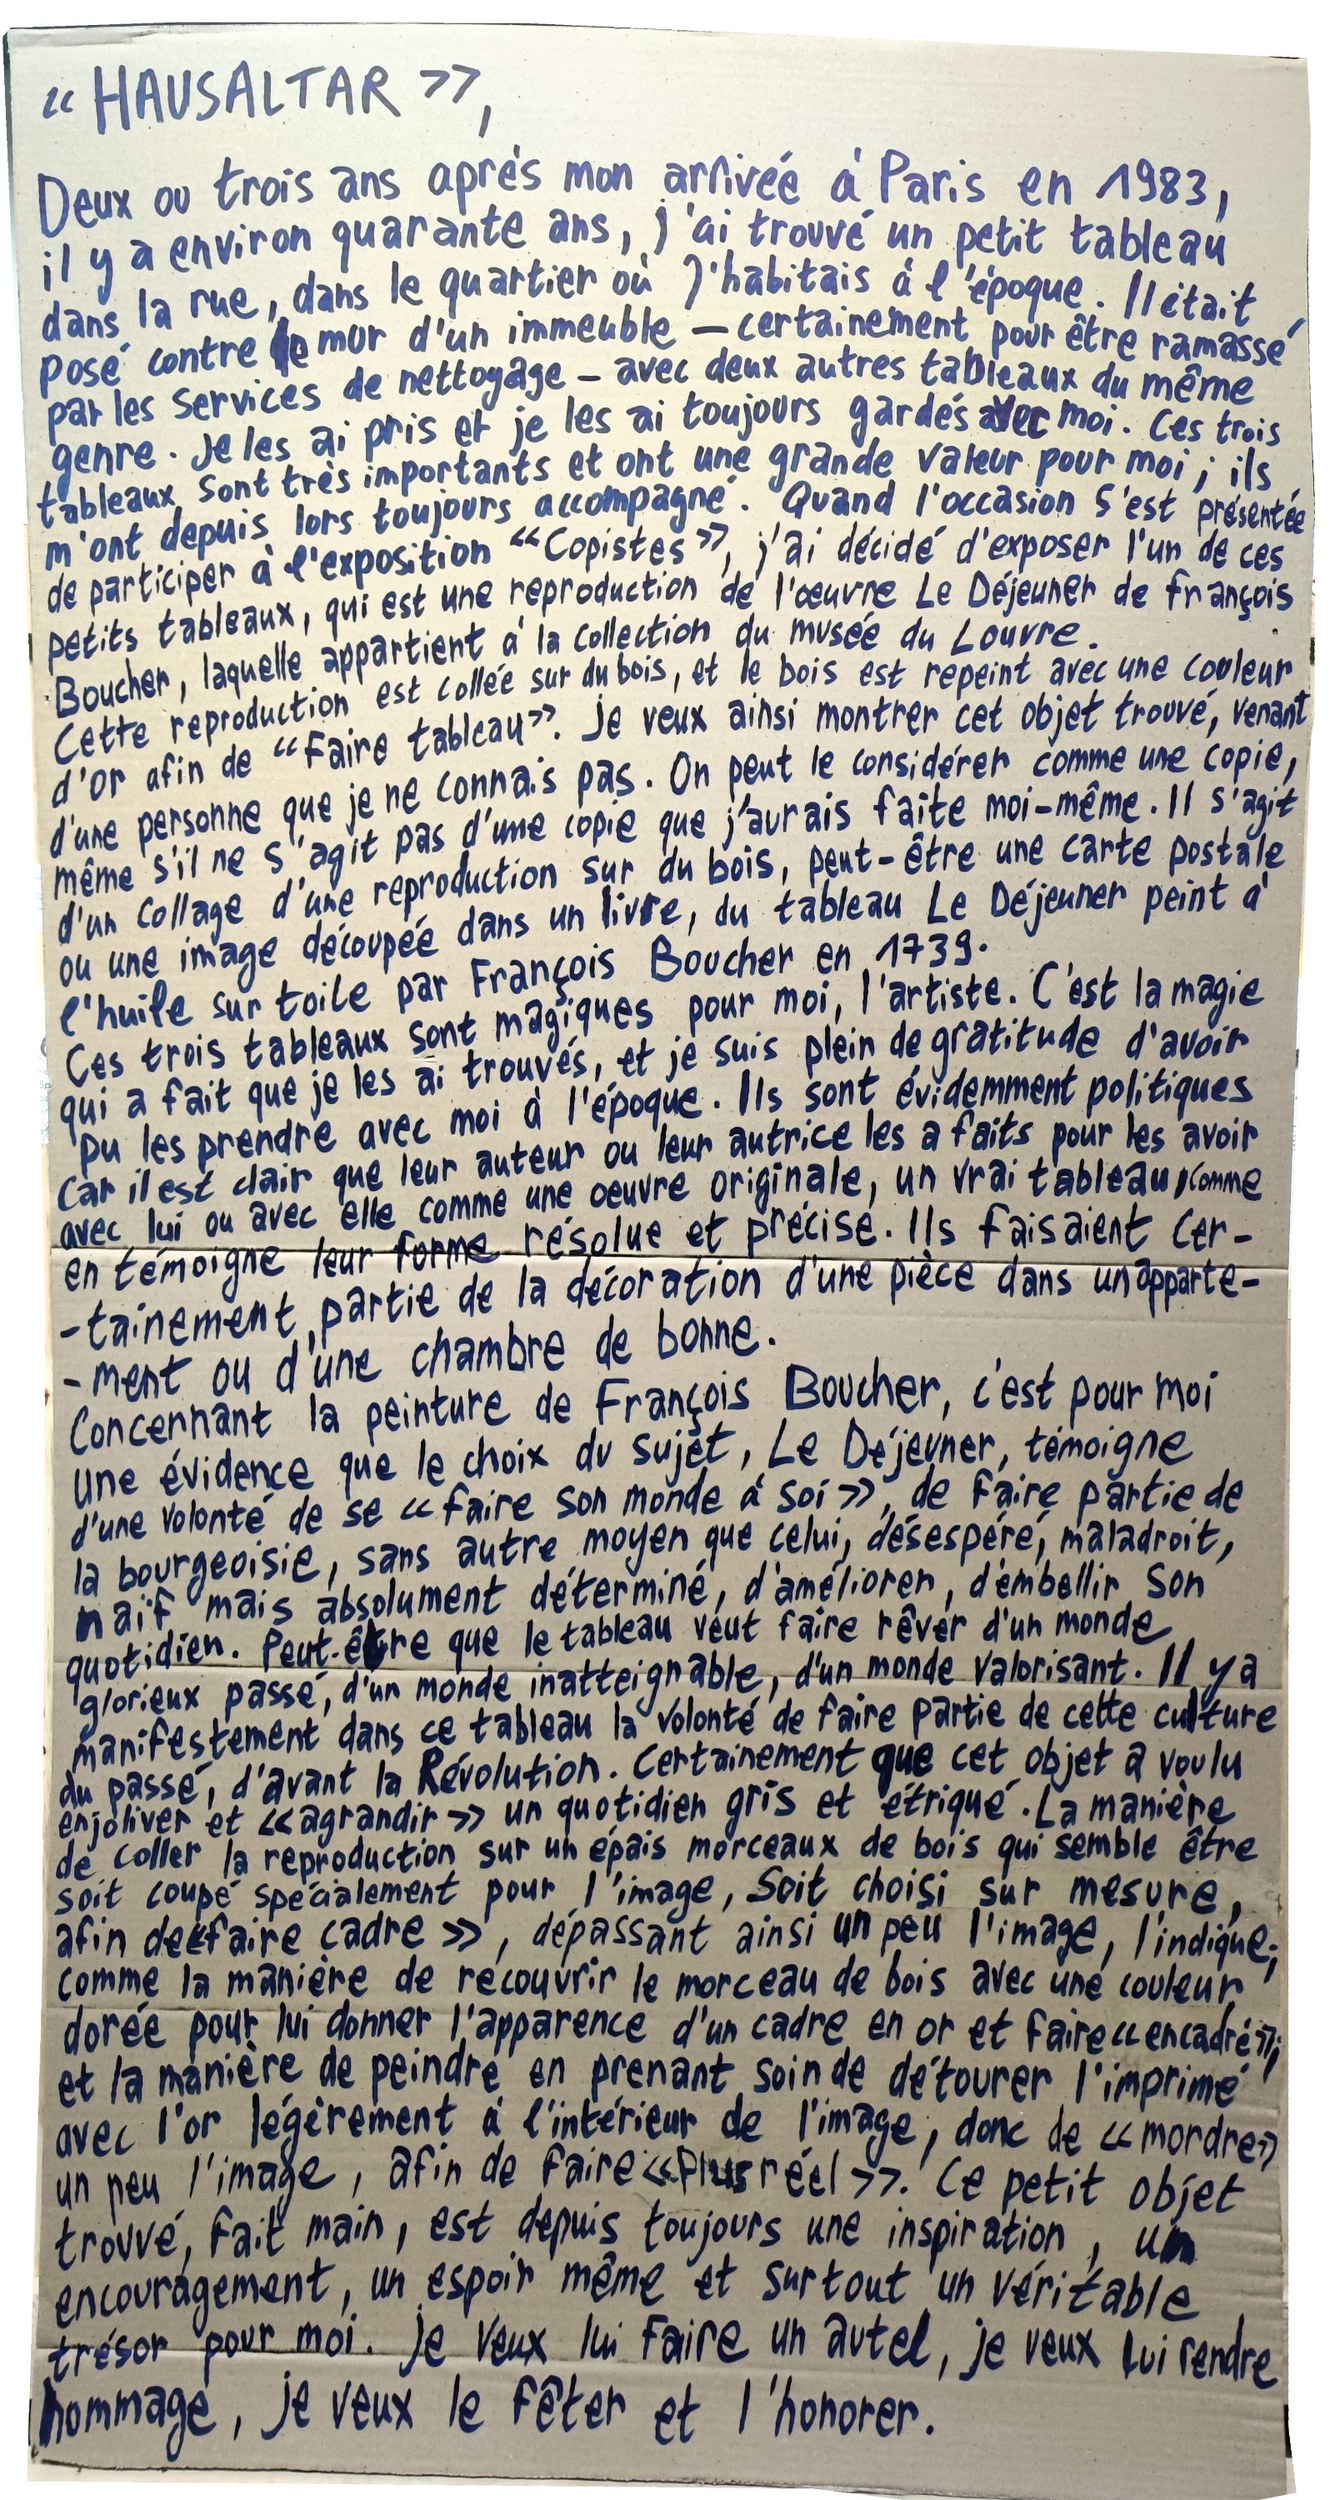 « HAUSALTAR »,
Deux ou trois ans après mon arrivée à Paris en 1983,
il y a environ quarante ans, j'ai trouvé un petit tableau
dans la rue, dans le quartier où j'habitais à l'époque. Il était
posé contre le mur d'un immeuble — certainement pour être ramassé
par les services de nettoyage — avec deux autres tableaux du même
genre. Je les ai pris et je les ai toujours gardés avec moi. Ces trois
tableaux sont très importants et ont une grande valeur pour moi ; ils
m'ont depuis lors toujours accompagné. Quand l'occasion s'est présentée
de participer à l'exposition “Copistes”, j'ai décidé d'exposer l'un de ces
petits tableaux, qui est une reproduction de l'œuvre Le Déjeuner de François
Boucher, laquelle appartient à la collection du musée du Louvre.
Cette reproduction est collée sur du bois, et le bois est repeint avec une couleur
d'or afin de “faire tableau”. Je veux ainsi montrer cet objet trouvé, venant
d'une personne que je ne connais pas. On peut le considérer comme une copie,
même s'il ne s'agit pas d'une copie que j'aurais faite moi-même. Il s'agit
d'un collage d'une reproduction sur du bois, peut-être une carte postale
ou une image découpée dans un livre, du tableau Le Déjeuner peint à
l'huile sur toile par François Boucher en 1739.
Ces trois tableaux sont magiques pour moi, l'artiste. C'est la magie
qui a fait que je les ai trouvés, et je suis plein de gratitude d'avoir
pu les prendre avec moi à l'époque. Ils sont évidemment politiques
car il est clair que leur auteur ou leur autrice les a faits pour les avoir
avec lui ou avec elle comme une oeuvre originale, un vrai tableau, comme
en témoigne leur forme résolue et précise. Ils faisaient cer-
-tainement partie de la décoration d'une pièce dans un apparte-
-ment ou d'une chambre de bonne.
Concernant la peinture de François Boucher, c'est pour moi
une évidence que le choix du sujet, Le Déjeuner, témoigne
d'une volonté de se « faire son monde à soi », de faire partie de
la bourgeoisie, sans autre moyen que celui, désespéré, maladroit,
naïf mais absolument déterminé, d'améliorer, d'embellir son
quotidien. Peut-être que le tableau veut faire rêver d'un monde
glorieux passé, d'un monde inatteignable, d'un monde valorisant. Il y a
manifestement dans ce tableau la volonté de faire partie de cette culture
du passé, d'avant la Révolution. Certainement que cet objet a voulu
enjoliver et « agrandir » un quotidien gris et étriqué. La manière
de coller la reproduction sur un épais morceaux de bois qui semble être
soit coupé spécialement pour l'image, soit choisi sur mesure,
afin de « faire cadre », dépassant ainsi un peu l'image, l'indique ;
comme la manière de recouvrir le morceau de bois avec une couleur
dorée pour lui donner l'apparence d'un cadre en or et faire « encadré » ;
et la manière de peindre en prenant soin de détourer l'imprimé
avec l'or légèrement à l'intérieur de l'image, donc de « mordre »
un peu l'image, afin de faire « plus réel ». Ce petit objet
trouvé, fait main, est depuis toujours une inspiration, un
encouragement, un espoir même et surtout un véritable
trésor pour moi. Je veux lui faire un autel, je veux lui rendre
hommage, je veux le fêter et l'honorer.